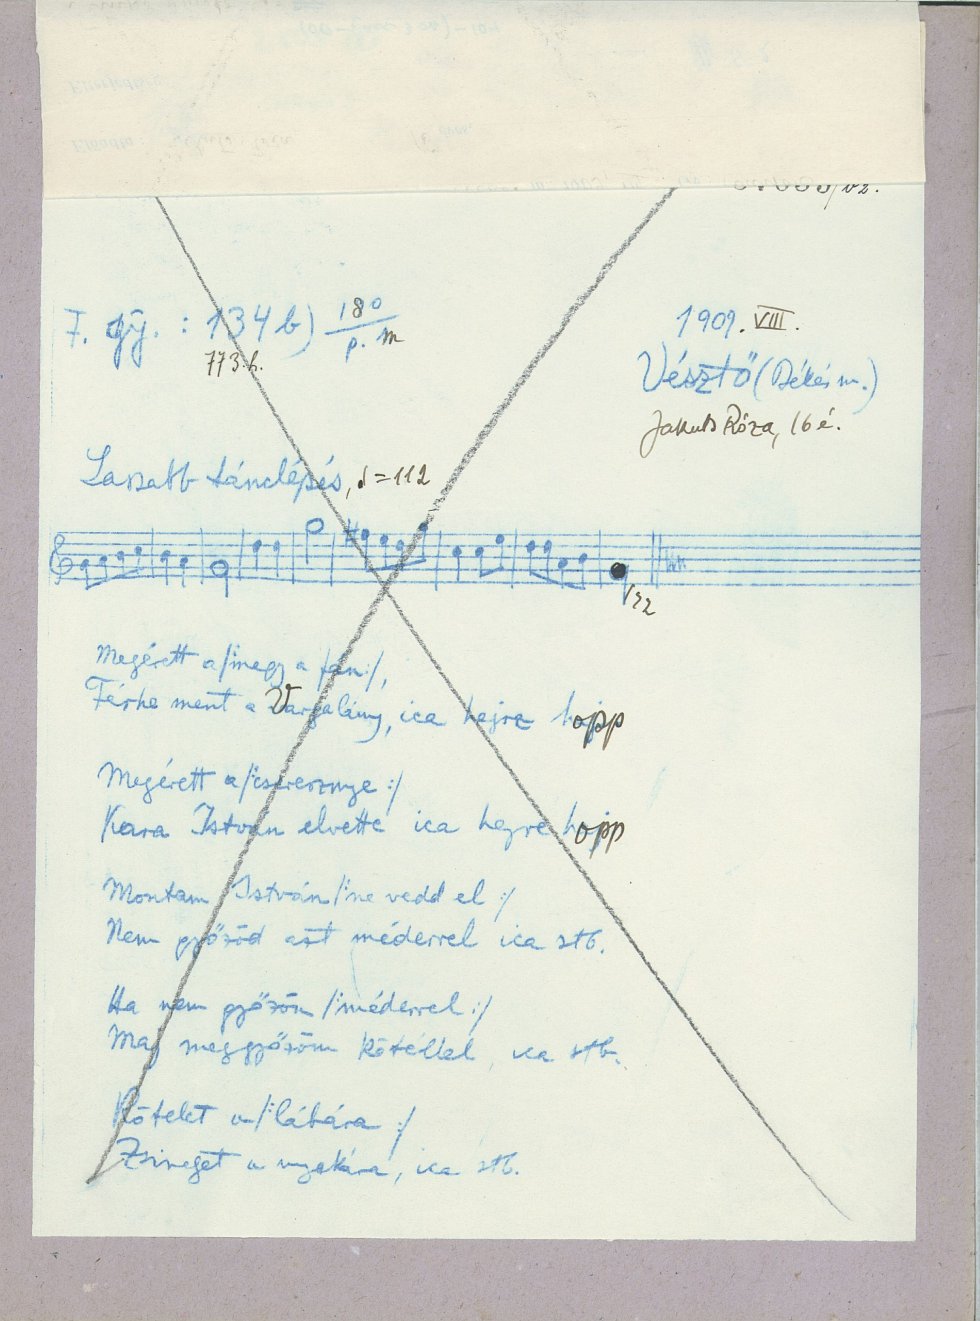 F. gy. : 134 b) 180
p. m
773.h.
1909. VIII.
Vésztő (Békés m.)
Jakab Róza, 16 é.
Lassabb tánclépés, ♩=112
132
Megérett a /:megy a fán:/,
Férhe ment a Vargalány, ica hejre hopp
Megérett a /:cseresznye :/
Kara István elvette ica hejre hopp
Montam István /:ne vedd el :/
Nem győzöd aszt méderrel ica stb.
Ha nem győzöm /:méderrel :/
Maj meggyőzöm kötéllel, ica stb.
Kötelet a /:lábára :/
Zsineget a nyakára, ica stb.